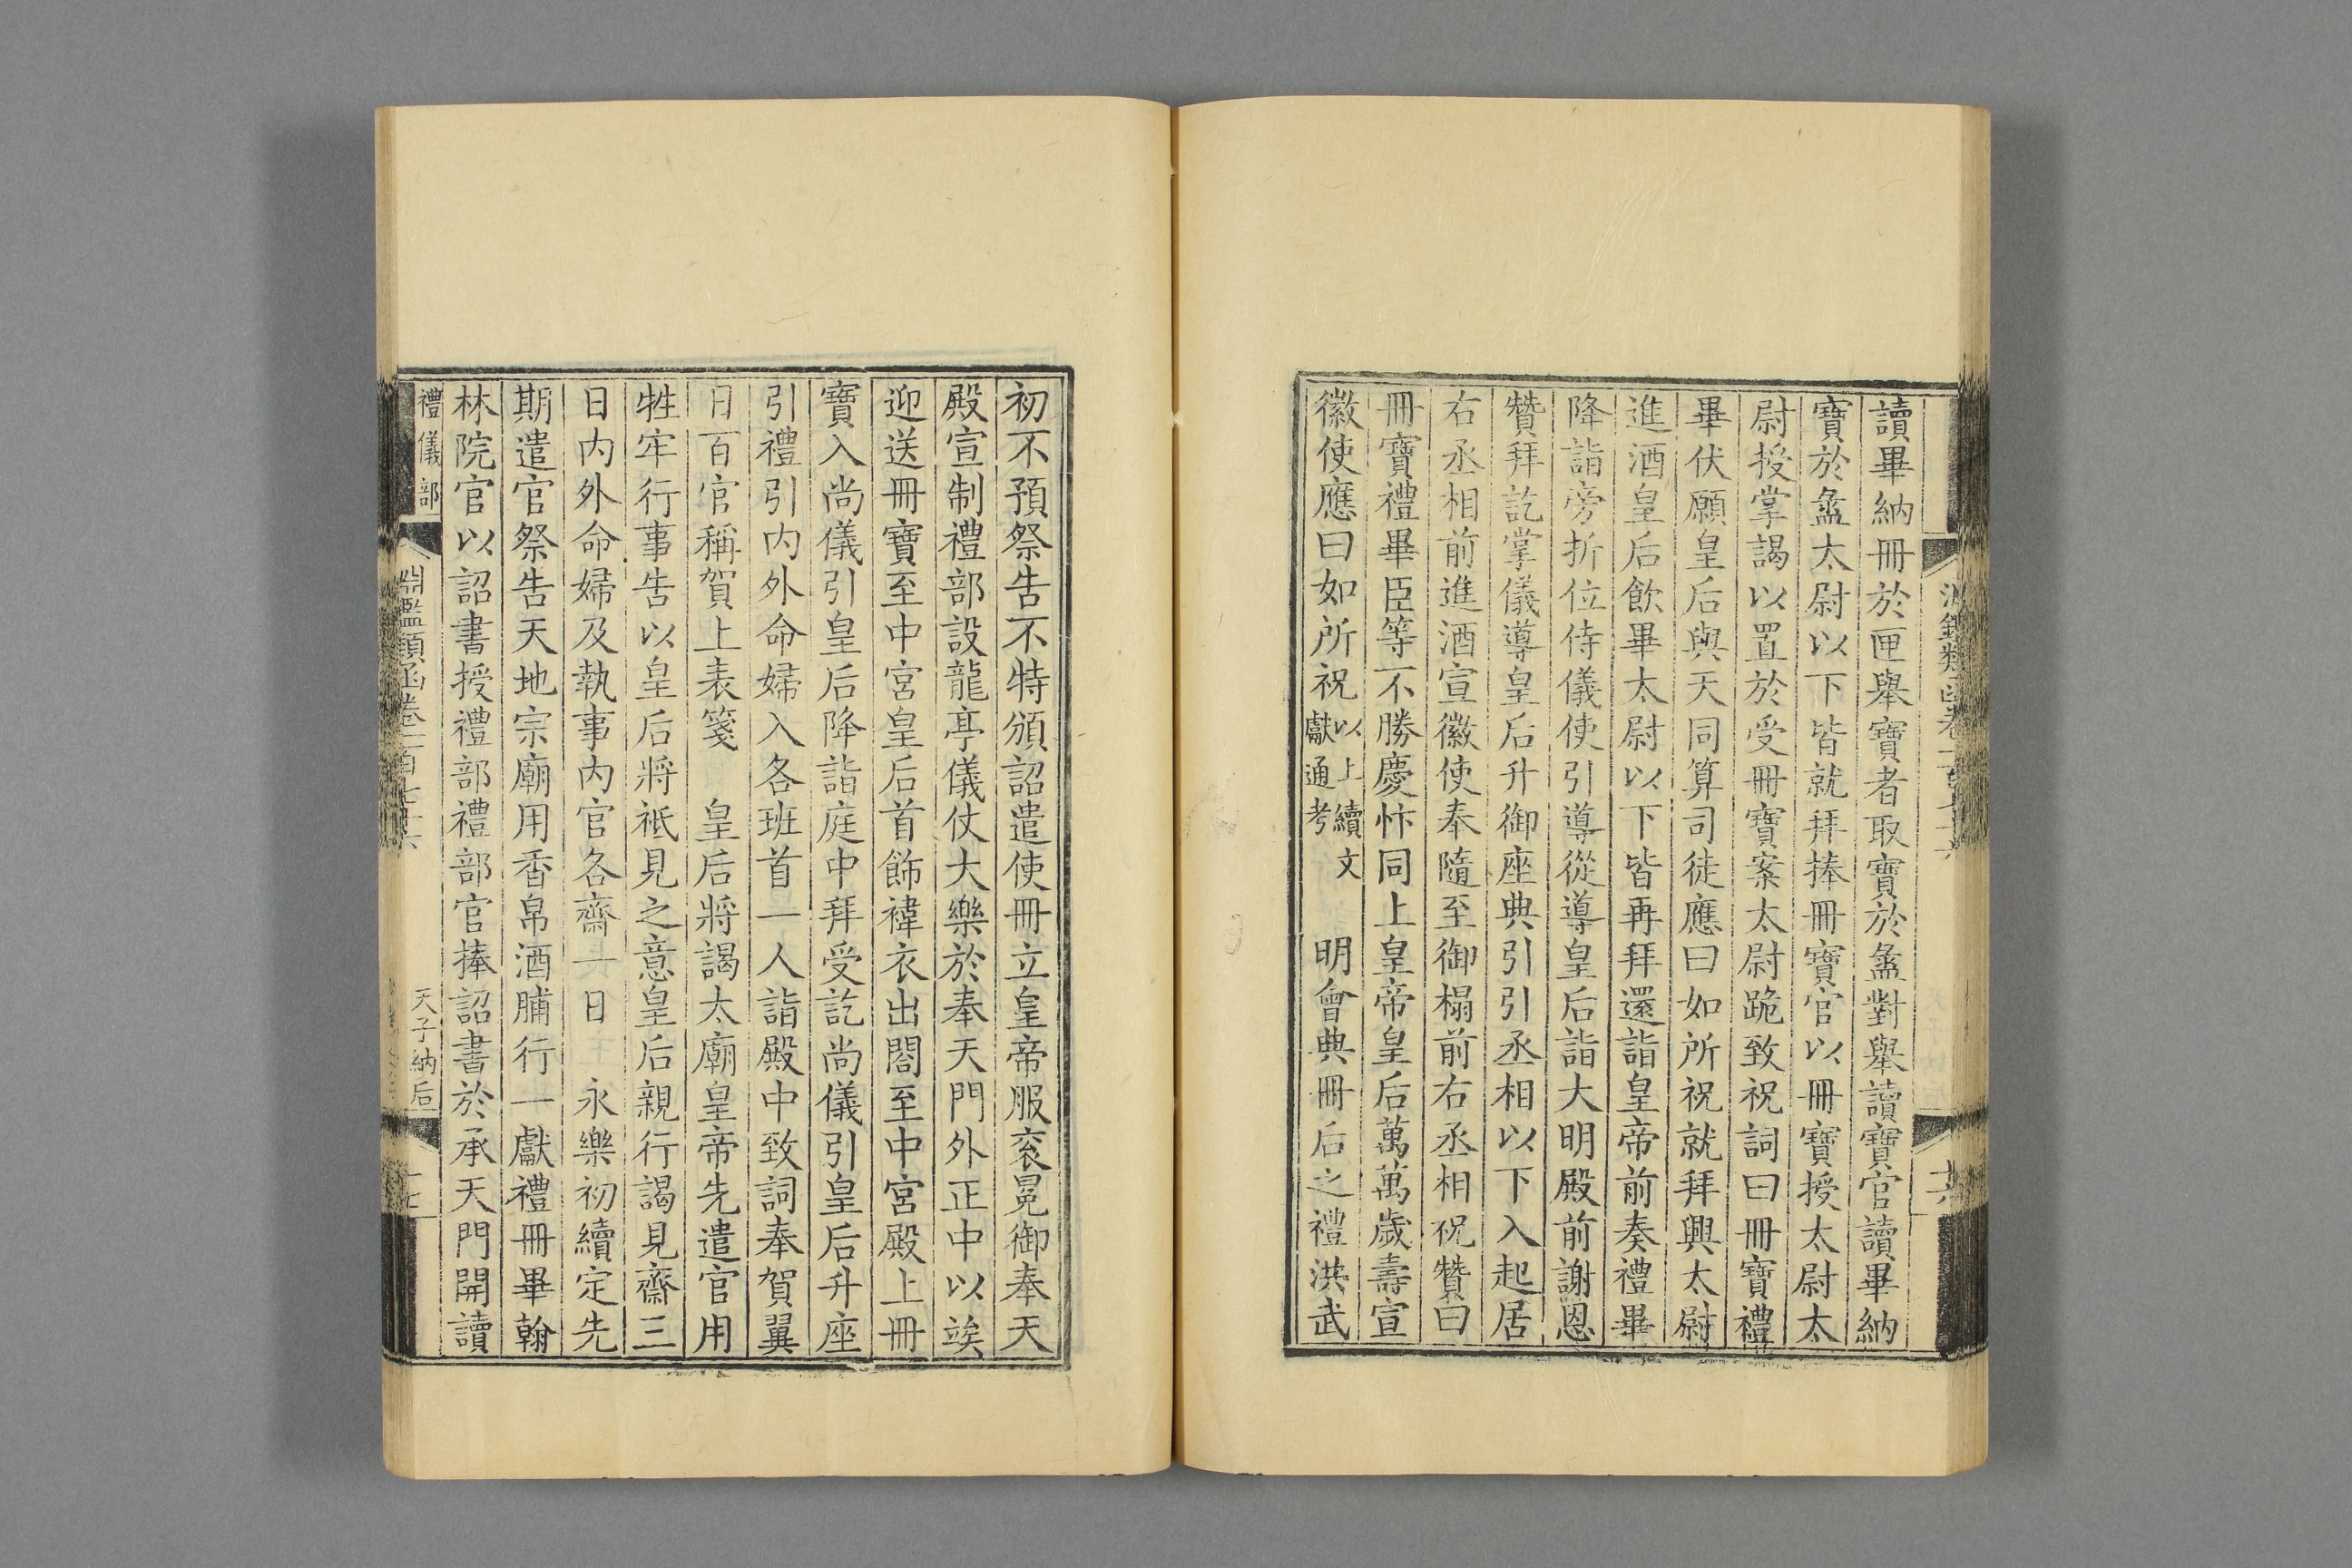 讀畢納冊於匣舉寶者取寶於盝對舉讀寶官讀畢納
寶於盝太尉以下皆就拜捧冊寶官以冊寶授太尉太
尉授掌謁以置於受冊寶案太尉跪致祝詞曰冊寶禮
畢伏願皇后與天同算司徒應曰如所祝就拜興太尉
進酒皇后飲畢太尉以下皆再拜還詣皇帝前奏禮畢
降詣旁折位侍儀使引導從導皇后詣大明殿前謝恩
贊拜訖掌儀導皇后升御座典引引丞相以下入起居
右丞相前進酒宣徽使奉隨至御榻前右丞相祝贊曰
冊寶禮畢臣等不勝慶忭同上皇帝皇后萬萬歲壽宣
徽使應曰如所祝以上續文獻通考 明會典冊后之禮洪武
初不預祭告不特頒詔遣使冊立皇帝服衮冕御奉天
殿宣制禮部設龍亭儀仗大樂於奉天門外正中以竢
迎送冊寶至中宮皇后首飾褘衣出閤至中宮殿上冊
寶入尚儀引皇后降詣庭中拜受訖尚儀引皇后升座
引禮引内外命婦入各班首一人詣殿中致詞奉賀翼
日百官稱賀上表箋 皇后將謁太廟皇帝先遣官用
牲牢行事告以皇后將祗見之意皇后親行謁見齋三
日内外命婦及執事内官各齋一日 永樂初續定先
期遣官祭告天地宗廟用香帛酒脯行一獻禮冊畢翰
林院官以詔書授禮部禮部官捧詔書於承天門開讀
禮儀部 淵鑑類函卷一百七十六 天子納后 十七